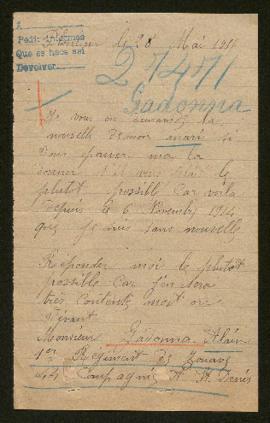 Pedir informes
Que se hace así
Devolver
le 28 Mai 1915
27471
Gadonna
Je vous en demandez la
nouvelle de mon mari si
vous pouver me la
donner s'il vous plait le
plutôt possible car voila
depuis le 6 Novembre 1914
que je suis sans nouvelle
Reponder moi le plutôt
possible car j'en sera
très contente
Monsieur Gadonna Alain
1er Regiment de Zouave
Compagnie St Denis